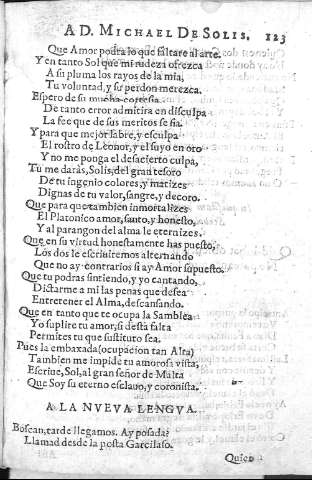 A D. MICHAEL DE SOLIS. 123
Que Amor podra lo que faltare al arte.
Y en tanto Sol que mi rudeza ofrezca
A su pluma los rayos de la mia,
Tu voluntad, y su perdon merezca.
Espero de su mucha cortesia
De tanto error admitira en disculpa
La fee que de sus meritos se fia.
Y para que mejor labre, y esculpa
El rostro de Leonor, y el suyo en oro
Y no me ponga el desacierto culpa,
Tu me daràs, Solis, del gran tesoro
De tu ingenio colores, y matizes
Dignas de tu valor, sangre, y decoro.
Que para que tambien inmortalizes
El Platonico amor, santo, y honesto,
Y al parangon del alma le eternizes.
Que en su virtud honestamente has puesto,
Los dos le escriuiremos alternando
Que no ay contrarios si ay Amor supuesto.
Que tu podras sintiendo, y yo cantando,
Dictarme a mi las penas que desea
Entretener el Alma, descansando.
Que en tanto que te ocupa la Samblea
Yo suplire tu amor, si desta falta
Permites tu que sustituto sea.
Pues la embaxada (ocupacion tan Alta)
Tambien me impide tu amorosa vista,
Escriue, Sol, al gran señor de Malta
Que Soy su eterno esclauo, y coronista.
A LA NVEVA LENGVA.
Boscan, tarde llegamos. Ay posada?
Llamad desde la posta Garcilaso.
Quien